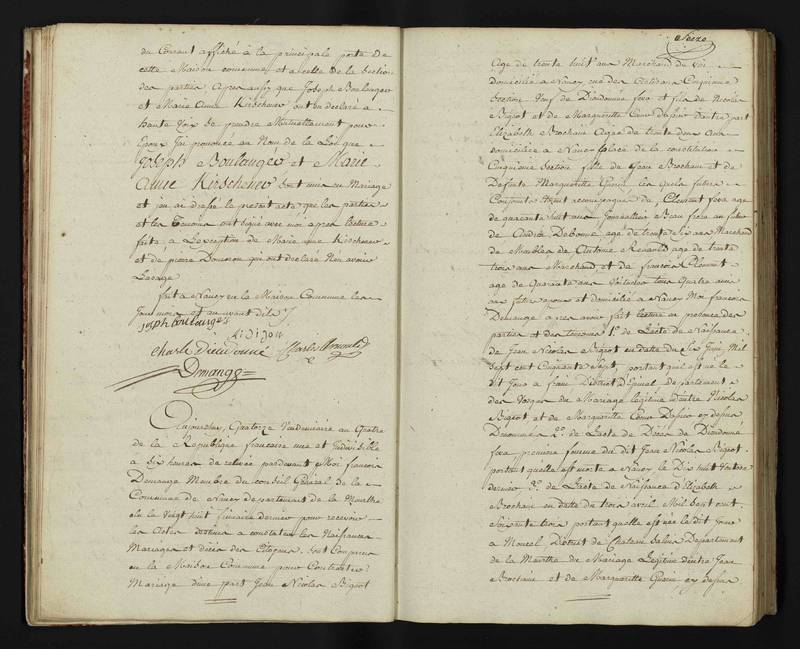 du Courant affiché à la principale porte de
cette Maison commune et a celle de la Section
des parties, Apres aussy que Joseph Boulanger
et Marie Anne Kirschener ont eu declaré a
haute Voix se prendre Mutuellement pour
Epoux J'ai prononcé au Nom de la Loi que
Joseph Boulanger et Marie
Anne Kirschener sont unis en Mariage
et j'en ai dressé le present acte que les parties
et les Temoins ont signé avec moi apres lecture
faite a L'exception de Marie Anne Kirschener
et de pierre qui ont declaré Non avoir
L'usage
fait a Nancy en la Maison Commune les
Jour mois et an avant dits
joseph boulanger
Didion
Charle Dieudonné Charle
Demange
Aujourdhui Quatorze Vendemiaire au Quatre
de la Republique francaise une et Indivisible
à Six heures de relevée pardevant Moi francois
Demange Membre du conseil Général de la
Commune de Nancy departement de la Meurthe
elu le Vingt huit frimaire dernier pour recevoir
les Actes destinés a constater les Naissances
Mariages et décès des Citoyens, sont Comparus
en la Maison Commune pour Contracter
Mariage d'une part Jean Nicolas Bigeot
Seize
Agé de trente huit ans Marchand de vin
domicilié a Nancy rue des Artisans Cinquieme
Section Veuf de Dieudonnée fera et fils de Nicolas
Bigeot et de Marguerite Dautre part
Elizabeth Brochain Agée de trente deux ans
domiciliée a Nancy place de la constitution
Cinquieme Section fille de Jean Brochain et de
Defunte Marguerite les quels futurs
Conjoints etant accompagnés de Clement fera agé
de quarante huit ans Journallier Beau frere au futur
de André Debonne agé de trente Six ans Marchand
de Meubles de Antoine Renauld agé de trente
trois ans Marchand, et de francois Clement
agé de Quarante ans Voiturier tous Quatre amis
au futur epoux et domiciliés a Nancy Moi francois
Demange apres avoir fait lecture en presence des
parties et des temoins 1.° de L'acte de Naissance
de Jean Nicolas Bigeot en datte du Six Juin Mil
Sept cent Cinquante Sept, portant qu'il est né le
dit Jour a District d'Epinal, departement
des Vosges du Mariage legitime d'entre Nicolas
Bigeot et de Marguerite cy dessus
Denommés 2.° de L'acte de Décès de Dieudonnée
fera premiere femme du dit Jean Nicolas Bigeot
portant quelle est morte a Nancy le Dix huit
dernier 3.° de L'acte de Naissance d'Elizabeth
Brochain en datte du trois avril Mil Sept cent
Soixante trois portant quelle est née le dit Jour
a Moncel District de Chateau Salins Departement
de la Meurthe du Mariage Legitime d'entre Jean
Brochain et de Marguerite cy dessus